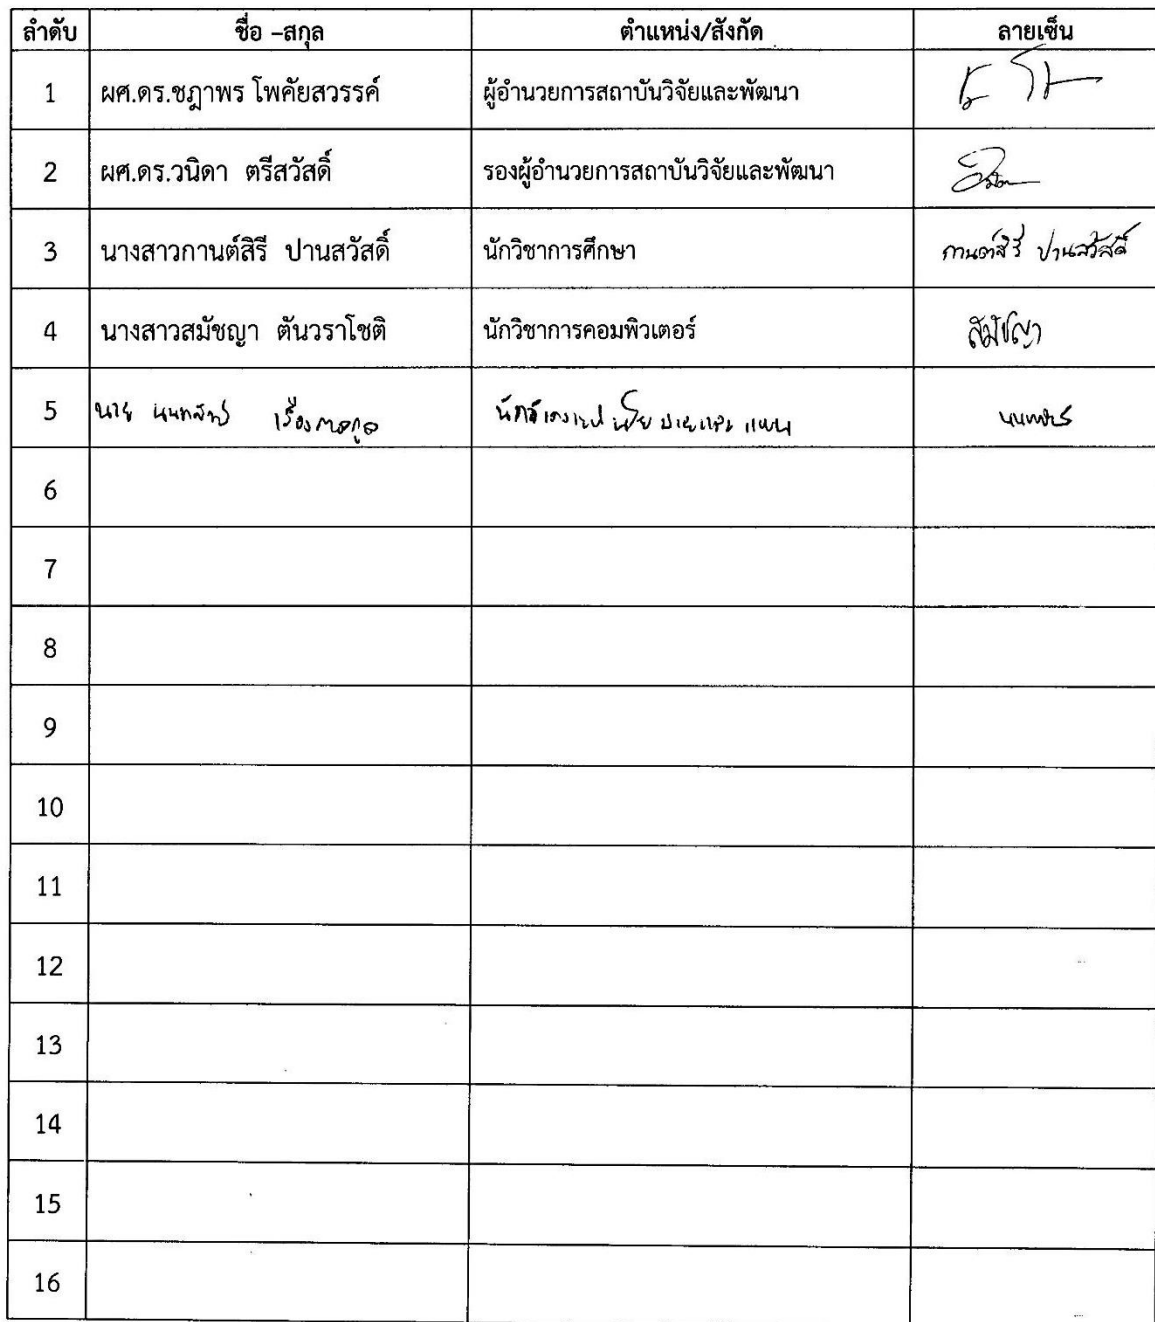 ลำดับ ชื่อ –สกุล ตำแหน่ง/สังกัด ลายเซ็น
1 ผศ.ดร.ชฎาพร โพคัยสวรรค์ ผู้อำนวยการสถาบันวิจัยและพัฒนา
2 ผศ.ดร.วนิดา ตรีสวัสดิ์ รองผู้อำนวยการสถาบันวิจัยและพัฒนา
3 นางสาวกานต์สิรี ปานสวัสดิ์ นักวิชาการศึกษา กานต์สิรี ปานสวัสดิ์
4 นางสาวสมัชญา ตันวราโชติ นักวิชาการคอมพิวเตอร์ สมัชญา
5 นาย
6
7
8
9
10
11
12
13
14
15
16